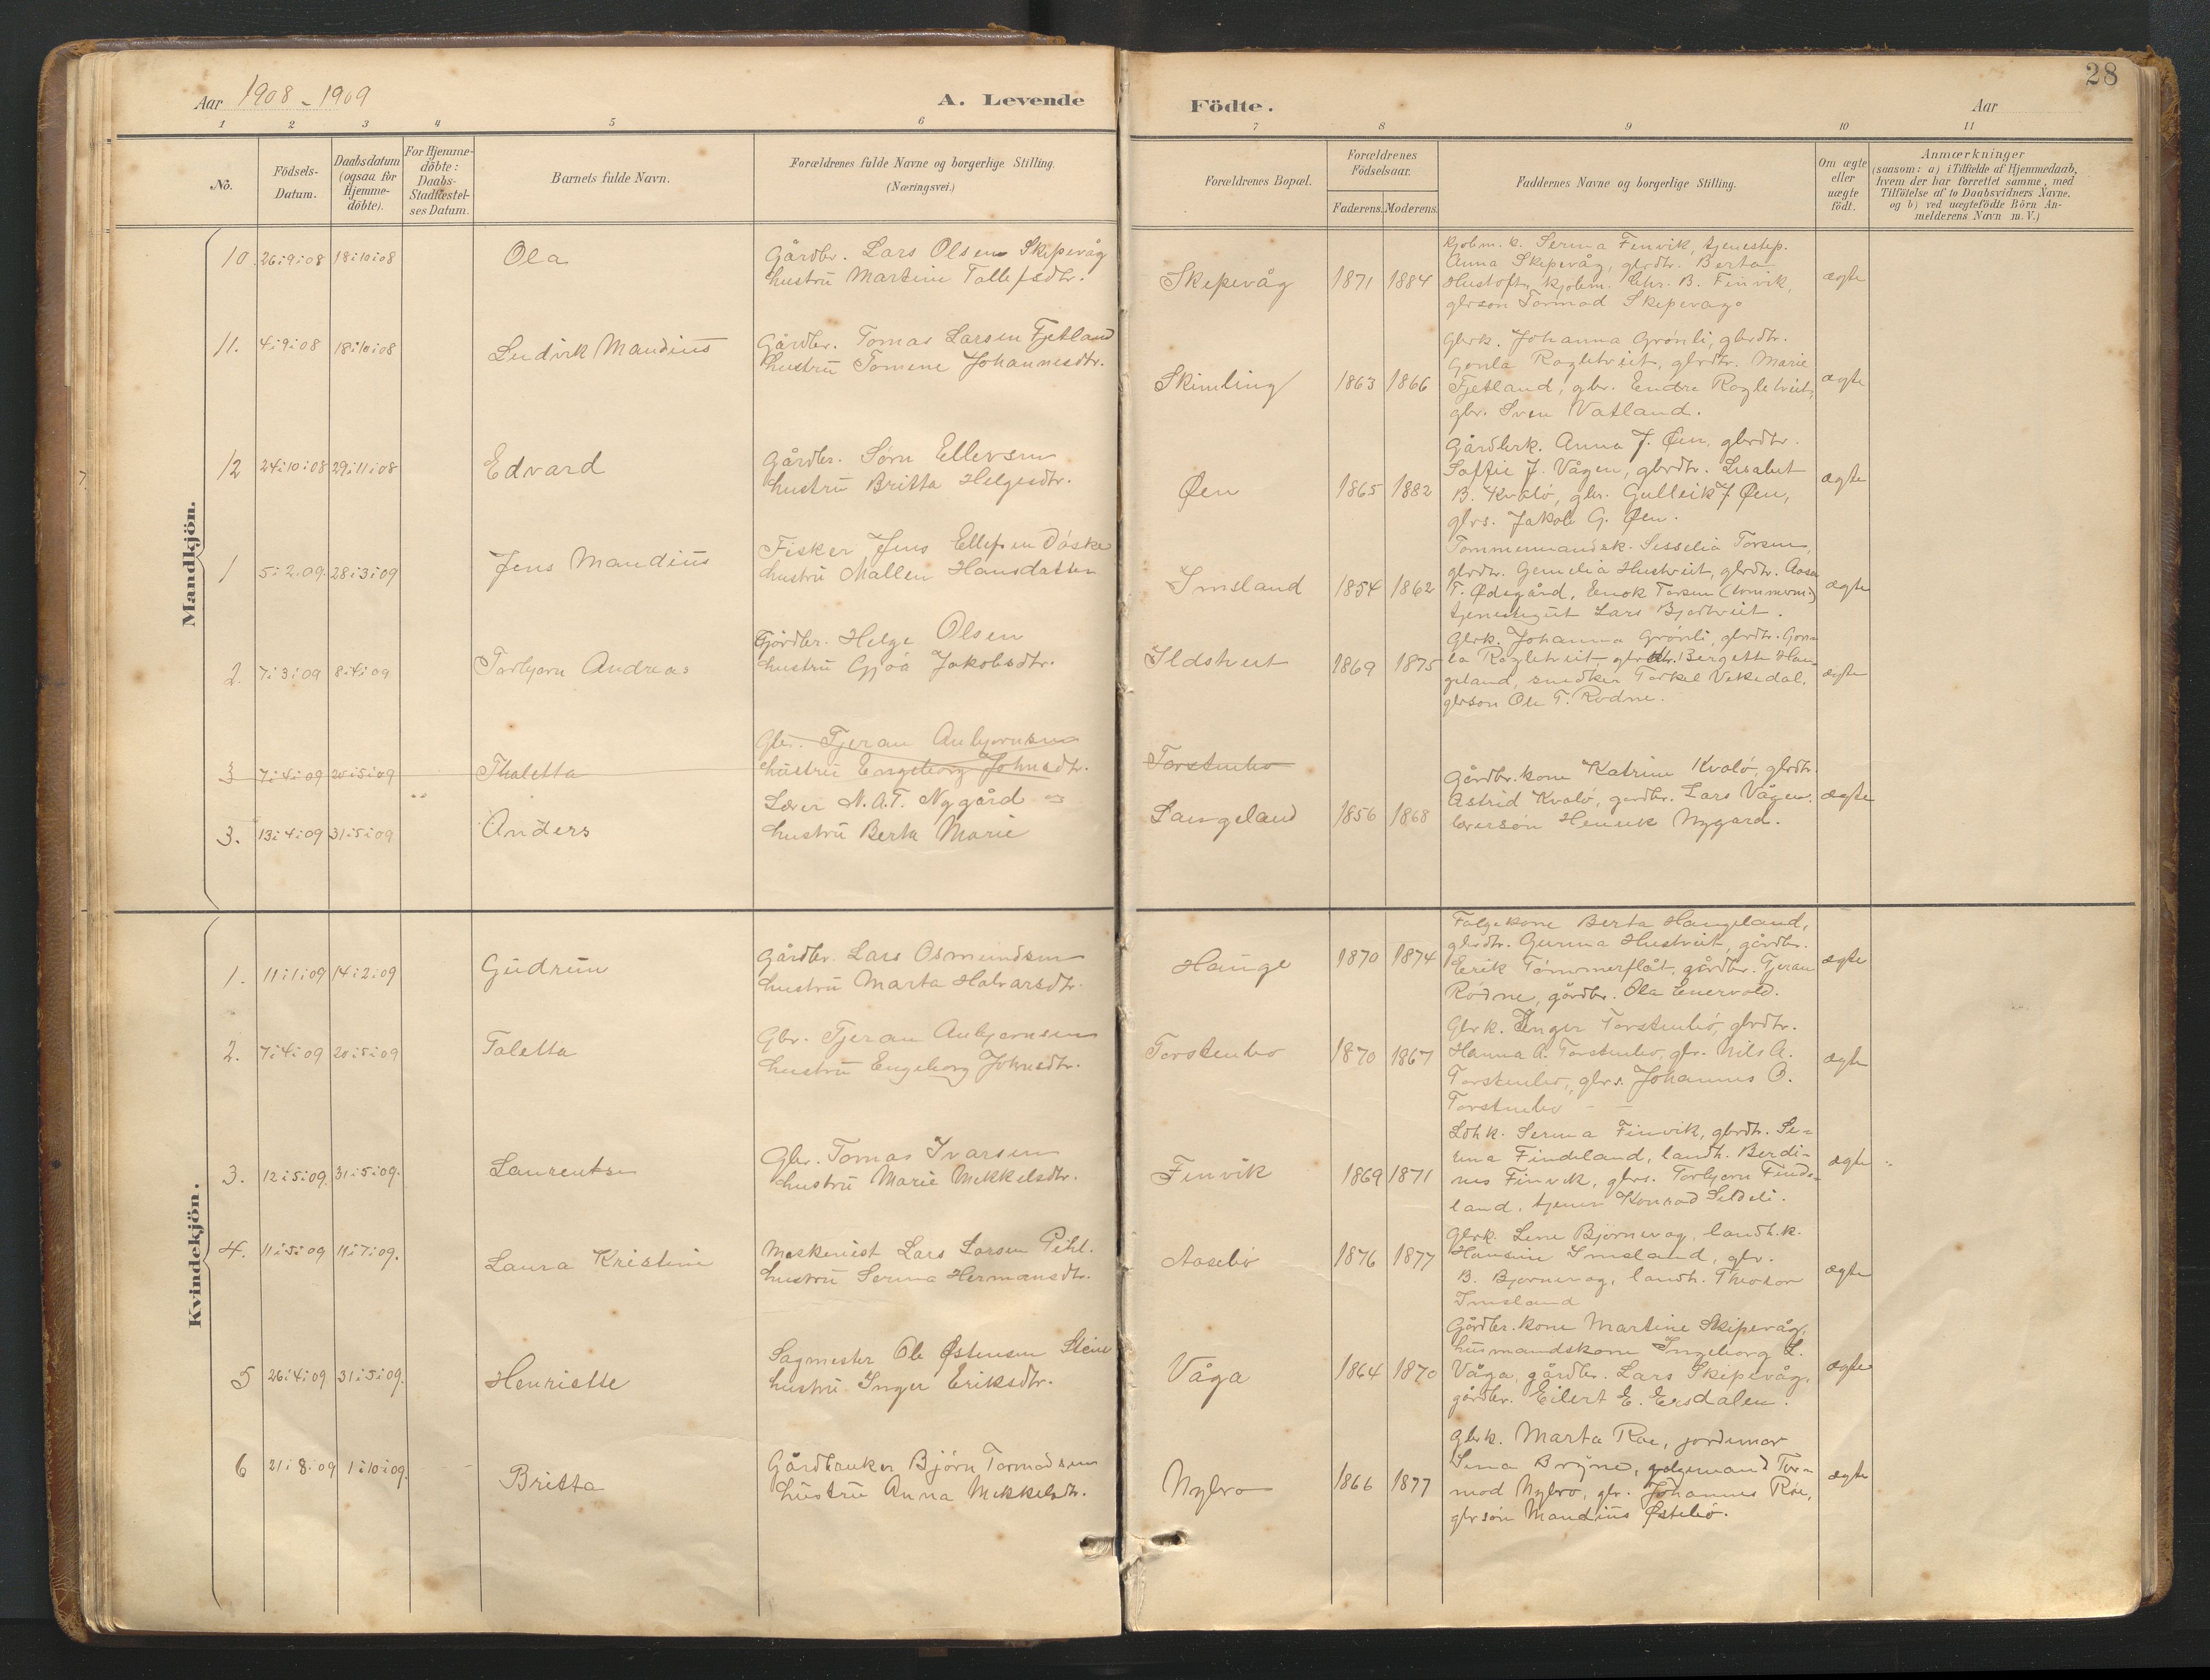 Aar 1908-1909
A. Levende
Födte.
Aar
28
1 2 3 4 5 6 7 8 9 10 11
No.
Födsels-
Datum.
Daabsdatum
(ogsaa for
Hjemme-
döbte).
For Hjemme-
döbte:
Daabs-
Stadfæstel-
ses Datum.
Barnets fulde Navn.
Forældrenes fulde Navne og borgerlige Stilling.
(Næringsvei.)
Forældrenes Bopæl.
Forældrenes
Födselsaar.
Faderens. Moderens.
Faddernes Navne og borgerlige Stilling.
Om ægte
eller
uægte
födt.
Anmærkninger
(saasom: a) i Tilfælde af Hjemmedaab,
hvem der har forrettet samme, med
Tilföielse af to Daabsvidners Navne.
og b) ved uægtefödte Börn An-
melderens Navn m. V.)
Mandkjön.
10 26:9:08 18:10:08 Ola
Gårdbr. Lars Olsen Skipevåg
hustrü Martine Tollefsdtr.
Skepevåg 1871 1884
Kjobm. k. Serina Finvik, tjenestep.
Anna Skipevåg, gbrdtr. Berta
Hustoft, kjobm. Chr. B. Finvik,
gbrson Tormod Skipevag.
ægte
11. 4:9:08 18:10:08 Ludvik Mandius
Gårdbr. Tomas Larsen Fjetland
hustrü Tomene Johannesdtr.
Skimling 1863 1866
Gbrk. Johanna Grönli, gbrdtr.
Gonla Ragletveit, gbrdtr. Marie
Fjetland, gbr. Endre Ragletveit,
gbr. Sven Vatland.
ægte
12 24:10:08 29:11:08 Edvard
Gårdbr. Sørn Ellevsen
hustrü Britta Helgesdtr.
Øen 1865 1882
Gårdbrk. Anna J. Øen, gbrdtr.
Soffie J. Vågen, gbrdtr. Lisabet
B. Kvalö, gbr. Gulleik J. Øen,
gbrs. Jakob G. Øen.
ægte
1 5:2:09. 28:3:09 Jens Mandius
Fisker Jens Ellefsen Våske
hustrü Mallen Hansdatter
Imsland 1854 1862
Tommermandsk. Sesselia Torsen,
gbrdtr. Gemelia Hustveit, gbrdtr. Aasa
T. Ødegård, Enok Torsen (tommerm.)
tjenestegut Lars Bjortveit.
ægte
2. 7:3:09 8:4:09 Torbjorn Andreas
Gjårdbr. Helge Olsen
hustrü Gjoa Jakobsdtr.
Ilstveit 1869 1875
Gbrk. Johanna Grönli, gbrdtr. Gon-
la Ragletveit, gbrdtr. Bergette Hau-
geland, snedker Torkel Vekedal,
gbrson Ole T. Rodne.
ægte
3 7:4:09 20:5:09 Thaletta
Gbr. Tjeran Anbjornsen
hustrü Engeborg Johnsdtr.
Torstenbo
3. 13:4:09 31:5:09 Anders
Lærer N. A. T. Nygård og
hustrü Berta Marie
Langeland 1856 1868
Gårdbr. kone Katrine Kvalö, gbrdtr.
Astrid Kvalö, gardbr. Lars Vågen,
lærersön Henrik Nygard.
ægte
Kvindekjön.
1. 11:1:09 14:2:09 Gudrun
Gårdbr. Lars Osmundsen
hustrü Marta Halvarsdtr.
Hauge 1870 1874
Folgekone Berta Haugeland,
gbrdtr. Gurina Hustveit, gårdbr.
Erik Tømmerflåt, gårdbr. Tjeran
Rödne, gårdbr. Ola Enervold.
ægte
2. 7:4:09 20:5:09 Taletta
Gbr. Tjeran Anbjornsen
hustrü Engeborg Johnsdtr.
Torstenbo 1870 1867
Gbrk. Inger Torstenbö, gbrdtr.
Hanna A. Torstenbo, gbr. Nils A.
Torstenbo, gbrs. Johannes O.
Torstenbo
ægte
3. 12:5:09. 31:5:09. Laurentse
Gbr. Tomas Ivarsen
hustrü Marie Mikkelsdtr.
Finvik 1869 1871
Ldhk. Serina Finvik, gbrdtr. Se-
rina Findeland, landh. Berdi-
nes Finvik, gbrs. Torbjorn Finde-
land, tjener Konrad Seldeli.
ægte
4. 11:5:09 11:7:09. Laura Kristine
Maskenist Lars Larsen Pihl.
hustrü Serina Hermansdtr.
Aasebö 1876 1877
Gbrk. Line Bjornevag, landh.k.
Hansine Imsland, gbr.
B. Bjornevag, landh. Theodor
Imsland
ægte
5 26:4:09 31:5:09. Henriette
Sagmester Ole Østensen Steine
hustrü Inger Eriksdtr.
Våga 1864 1870
Gårdbr. kone Martine Skipevåg,
husmandskone Ingeborg L.
Våga, gårdbr. Lars Skipevåg,
gårdbr. Eilert E. Ersdalen.
ægte
6 21:8:09 1:10:09. Britta
Gårdbruker Björn Tormodsen
hustrü Anna Mikkelsdtr.
Nybro 1866 1877
Gbrk. Marta Roe, jordemor
Sina Bryne, folgemand Tor-
mod Nybro, gbr. Johannes Roe,
gbrson Mandius Østebö.
ægte